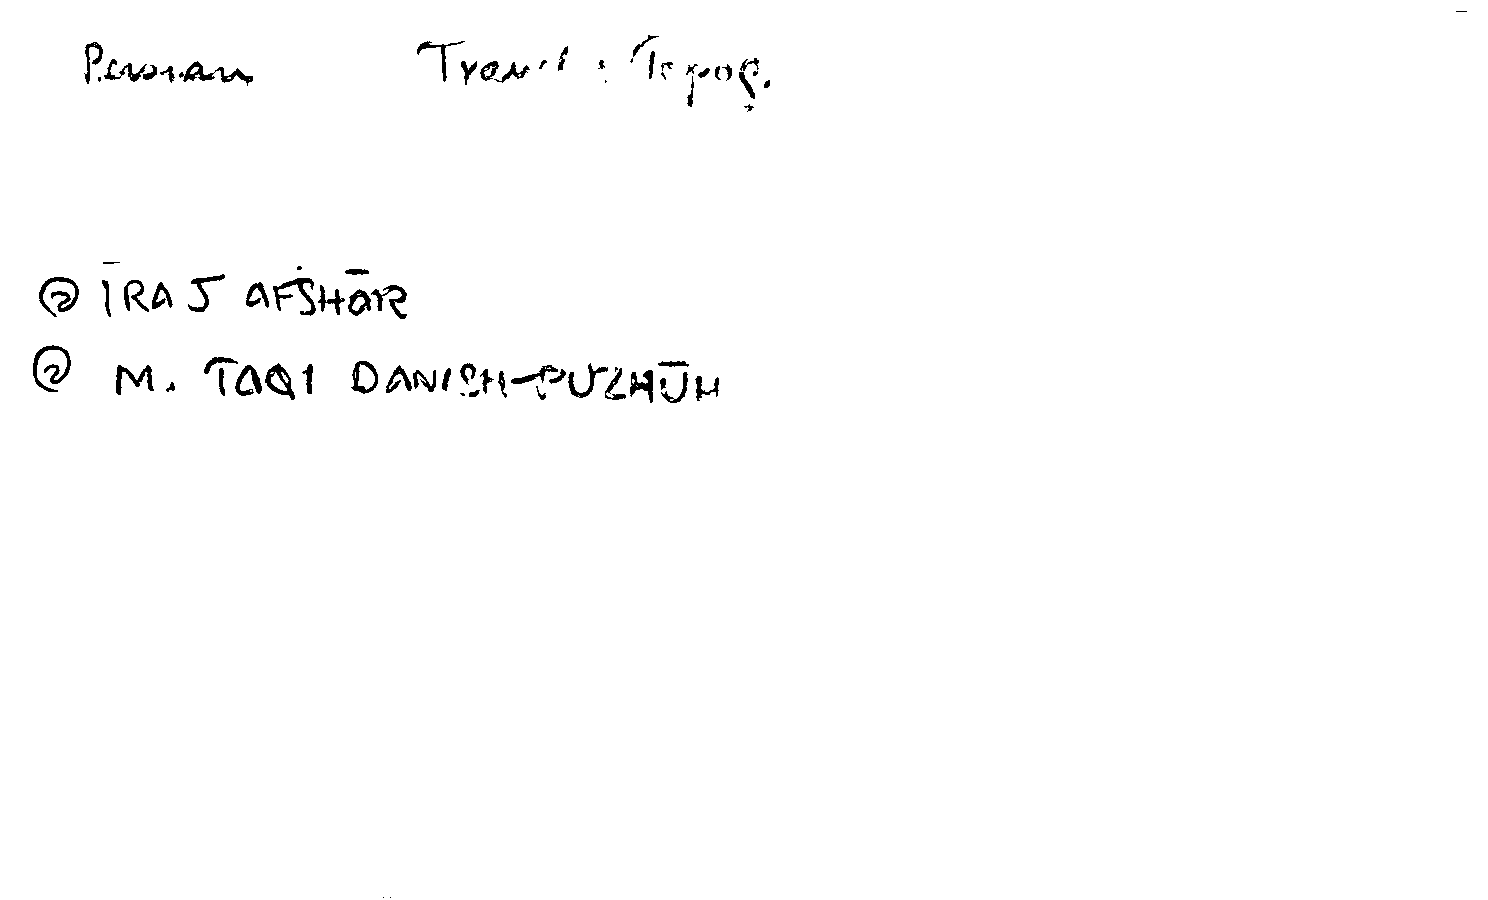 Persian Transl : Topog.
② ĪRAJ AFSHĀR
② M. TAQI DANISH-PUZHŪH